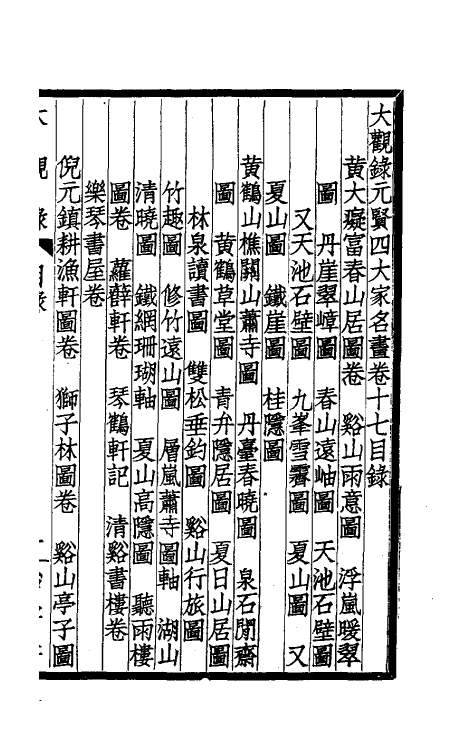 大觀錄元賢四大家名畫卷十七目錄
黃大癡富春山居圖卷　谿山雨意圖　浮嵐暖翠
圖　丹崖翠嶂圖　春山遠岫圖　天池石壁圖
又天池石壁圖　九峯雪霽圖　夏山圖　又
夏山圖　鐵崖圖　桂隱圖
黃鶴山樵關山蕭寺圖　丹臺春曉圖　泉石閒齋
圖　黃鶴草堂圖　青弁隱居圖　夏日山居圖
林泉讀書圖　雙松垂釣圖　谿山行旅圖
竹趣圖　修竹遠山圖　層嵐蕭寺圖軸　湖山
清曉圖　鐵網珊瑚軸　夏山高隱圖　聽雨樓
圖卷　蘿薜軒卷　琴鶴軒記　清谿書樓卷
樂琴書屋卷
倪元鎮耕漁軒圖卷　獅子林圖卷　谿山亭子圖
大觀錄　目錄